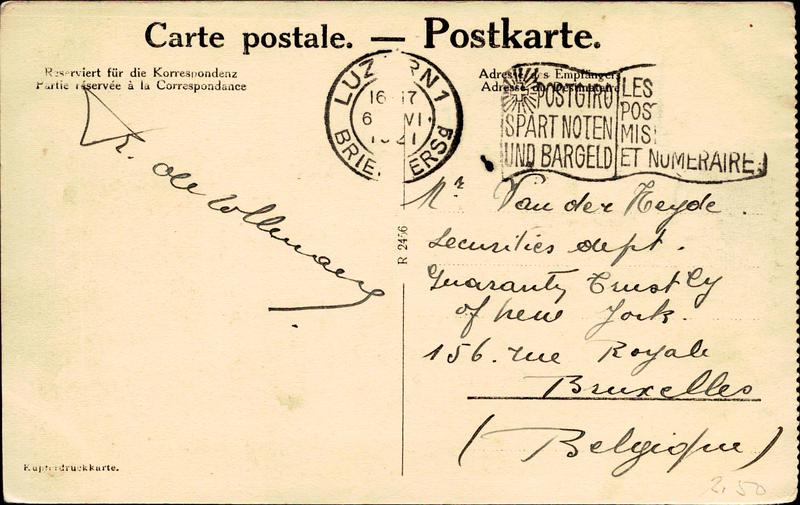 Carte postale. — Postkarte.
Reserviert für die Korrespondenz
Partie réservée à la Correspondance
Adresse des Empfängers
Adresse du Destinataire
LUZERN 1
16-17
6 VI
1921
BRIEFVERSd
POSTGIRO
SPART NOTEN
UND BARGELD
LES
POS
MIS
ET NUMERAIRE.
R 2466
Mr Van der Heyde
Securities dept.
Guaranty Trust Cy
of New York.
156. rue Royale
Bruxelles
(Belgique)
Kupferdruckkarte.
2.50